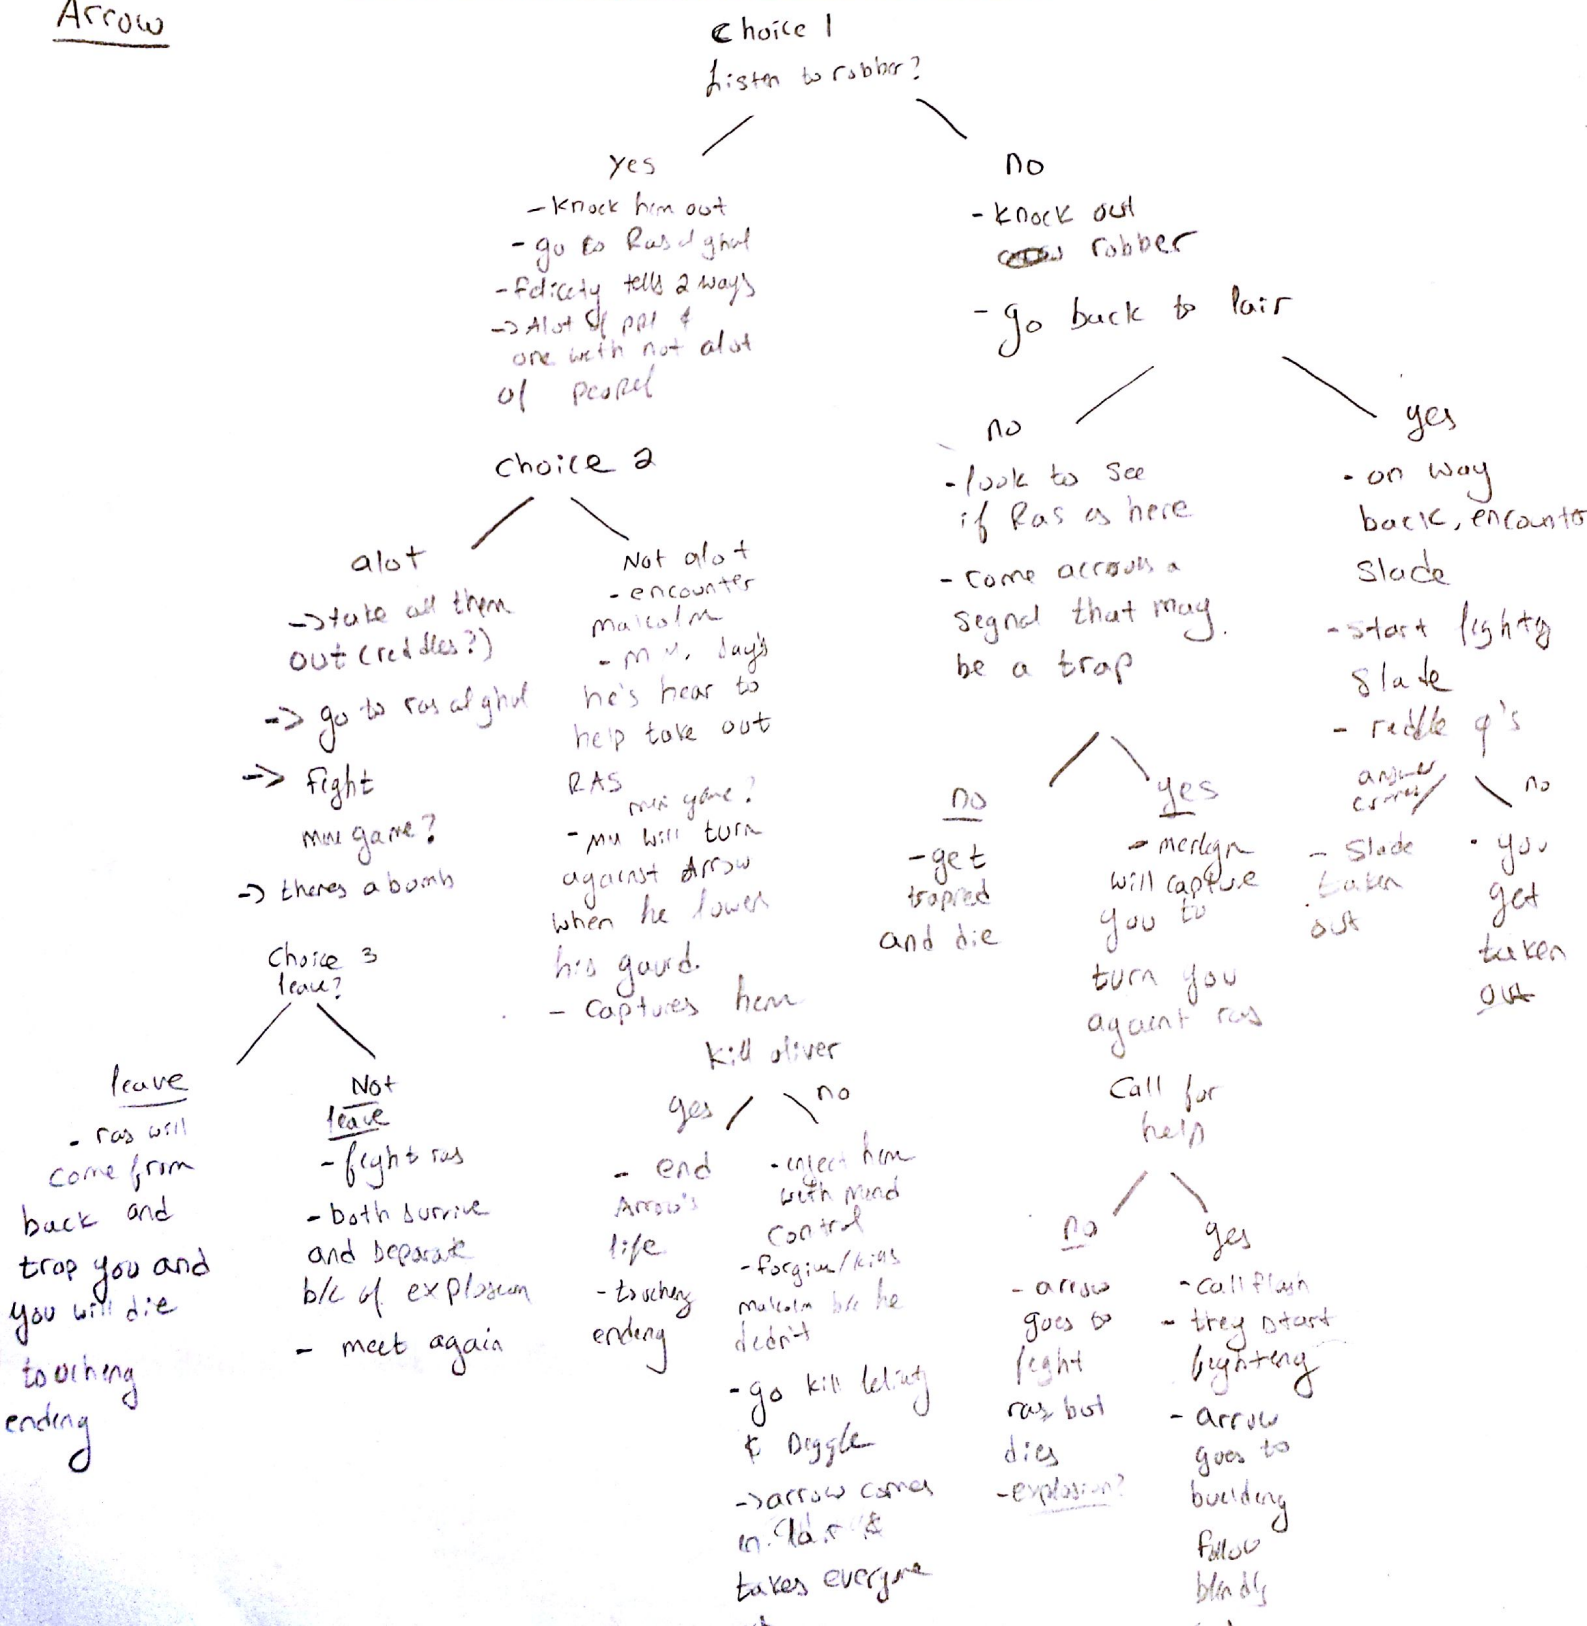 Arrow
Choice 1
Listen to robber?
yes
- knock him out
- go to Ras al ghul
- felicity tells 2 ways
-> Alot of ppl &
one with not alot
of
Choice 2
alot
-> take all them
out (reddles?)
-> go to ras al ghul
-> fight
mini game?
-> theres a bomb
Choice 3
leave?
leave
- ras will
come from
back and
trap you and
you will die
touching
ending
Not
leave
- fight ras
- both survive
and separate
b/c of explosion
- meet again
Not alot
- encounter
malcolm
- M says
he's hear to
help take out
RAS
mini game?
- MM will turn
against Arrow
when he lowers
his gaurd.
- captures him
kill oliver
yes
- end
Arrow's
life
- touching
ending
no
- inject him
with mind
control
- forgive/
malcolm b/c he
didn't
- go kill felicity
& Diggle
-> arrow comes
in lair &
takes everyone
no
- knock out
robber
- go back to lair
no
- look to see
if Ras is here
- come accross a
signal that may
be a trap
no
- get
trapped
and die
yes
- merlyn
will capture
you to
turn you
against ras
Call for
help
no
- arrow
goes to
fight
ras but
dies
- explosion?
yes
- call flash
- they start
fighting
- arrow
goes to
building
follow
blindly
yes
- on way
back, encounter
Slade
- start fighting
Slade
- riddle q's
answer
correct
- Slade
taken
out
no
- you
get
taken
out